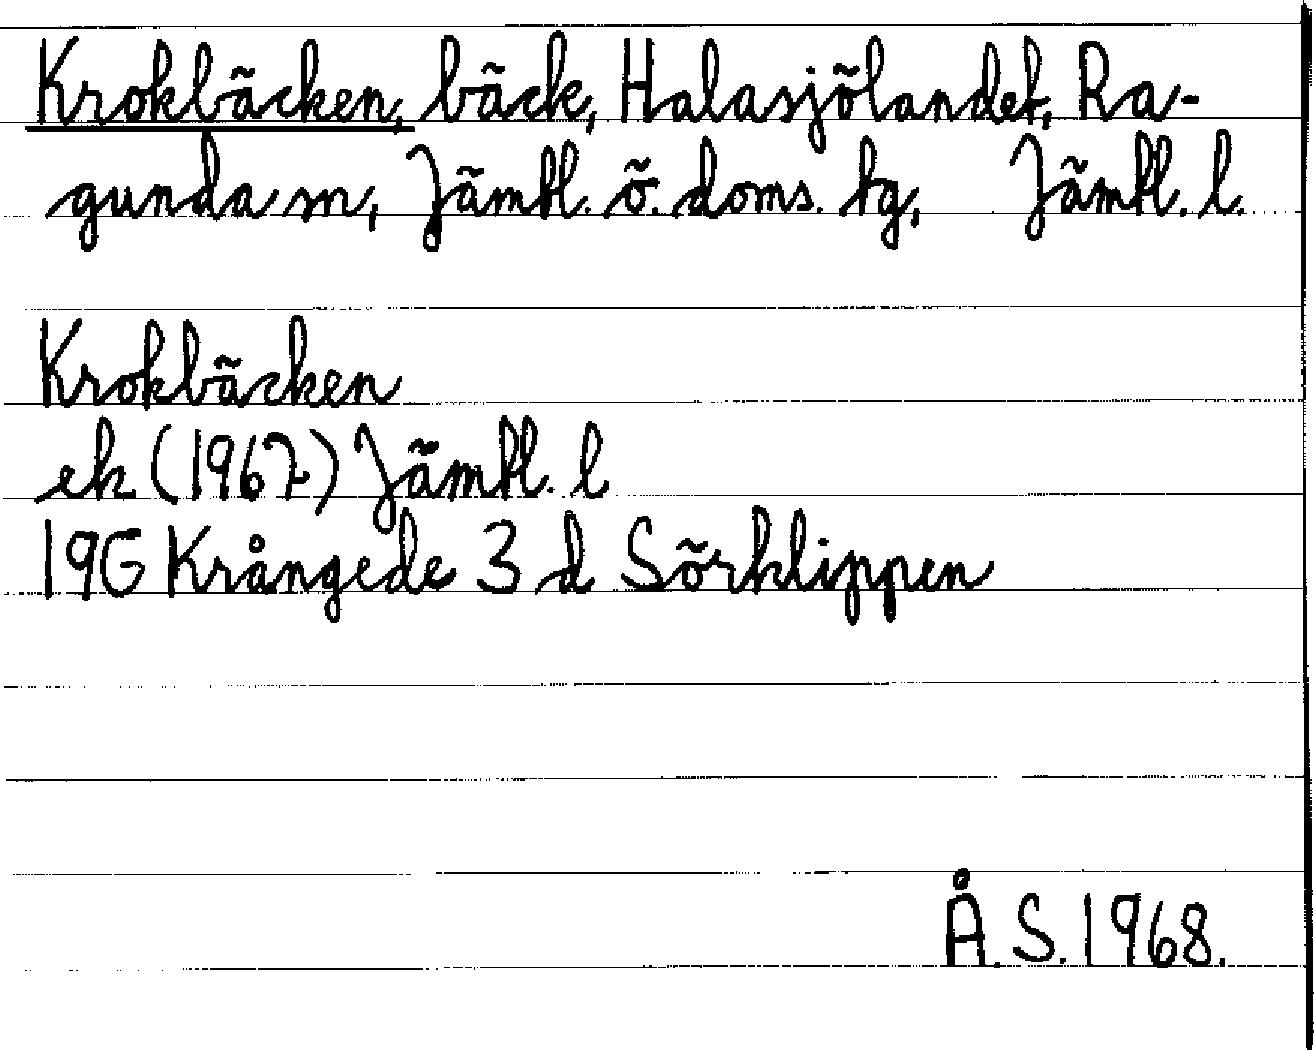 Krokbäcken, bäck, Halasjölandet, Ra-
gunda sn, Jämtl. ö. doms. tg, Jämtl. l.
Krokbäcken
ek (1967) Jämtl. l
19G Krångede 3 d Sörklippen
Å.S. 1968.